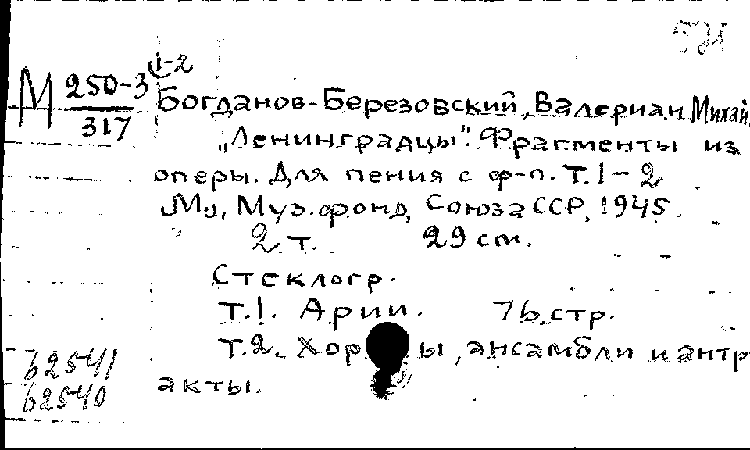 1-2
М 250-3
317
Богданов-Березовский, Валериан Михай
„Ленинградцы". Фрагменты из
оперы. Для пения с ф-п. Т.1-2
М., Муз. фонд Союза ССР, 1945.
2 т. 29 см.
Стеклогр.
Т.1. Арии. 76 стр.
Т.2. Хоры, ансамбли и антр
акты.
62541
62540